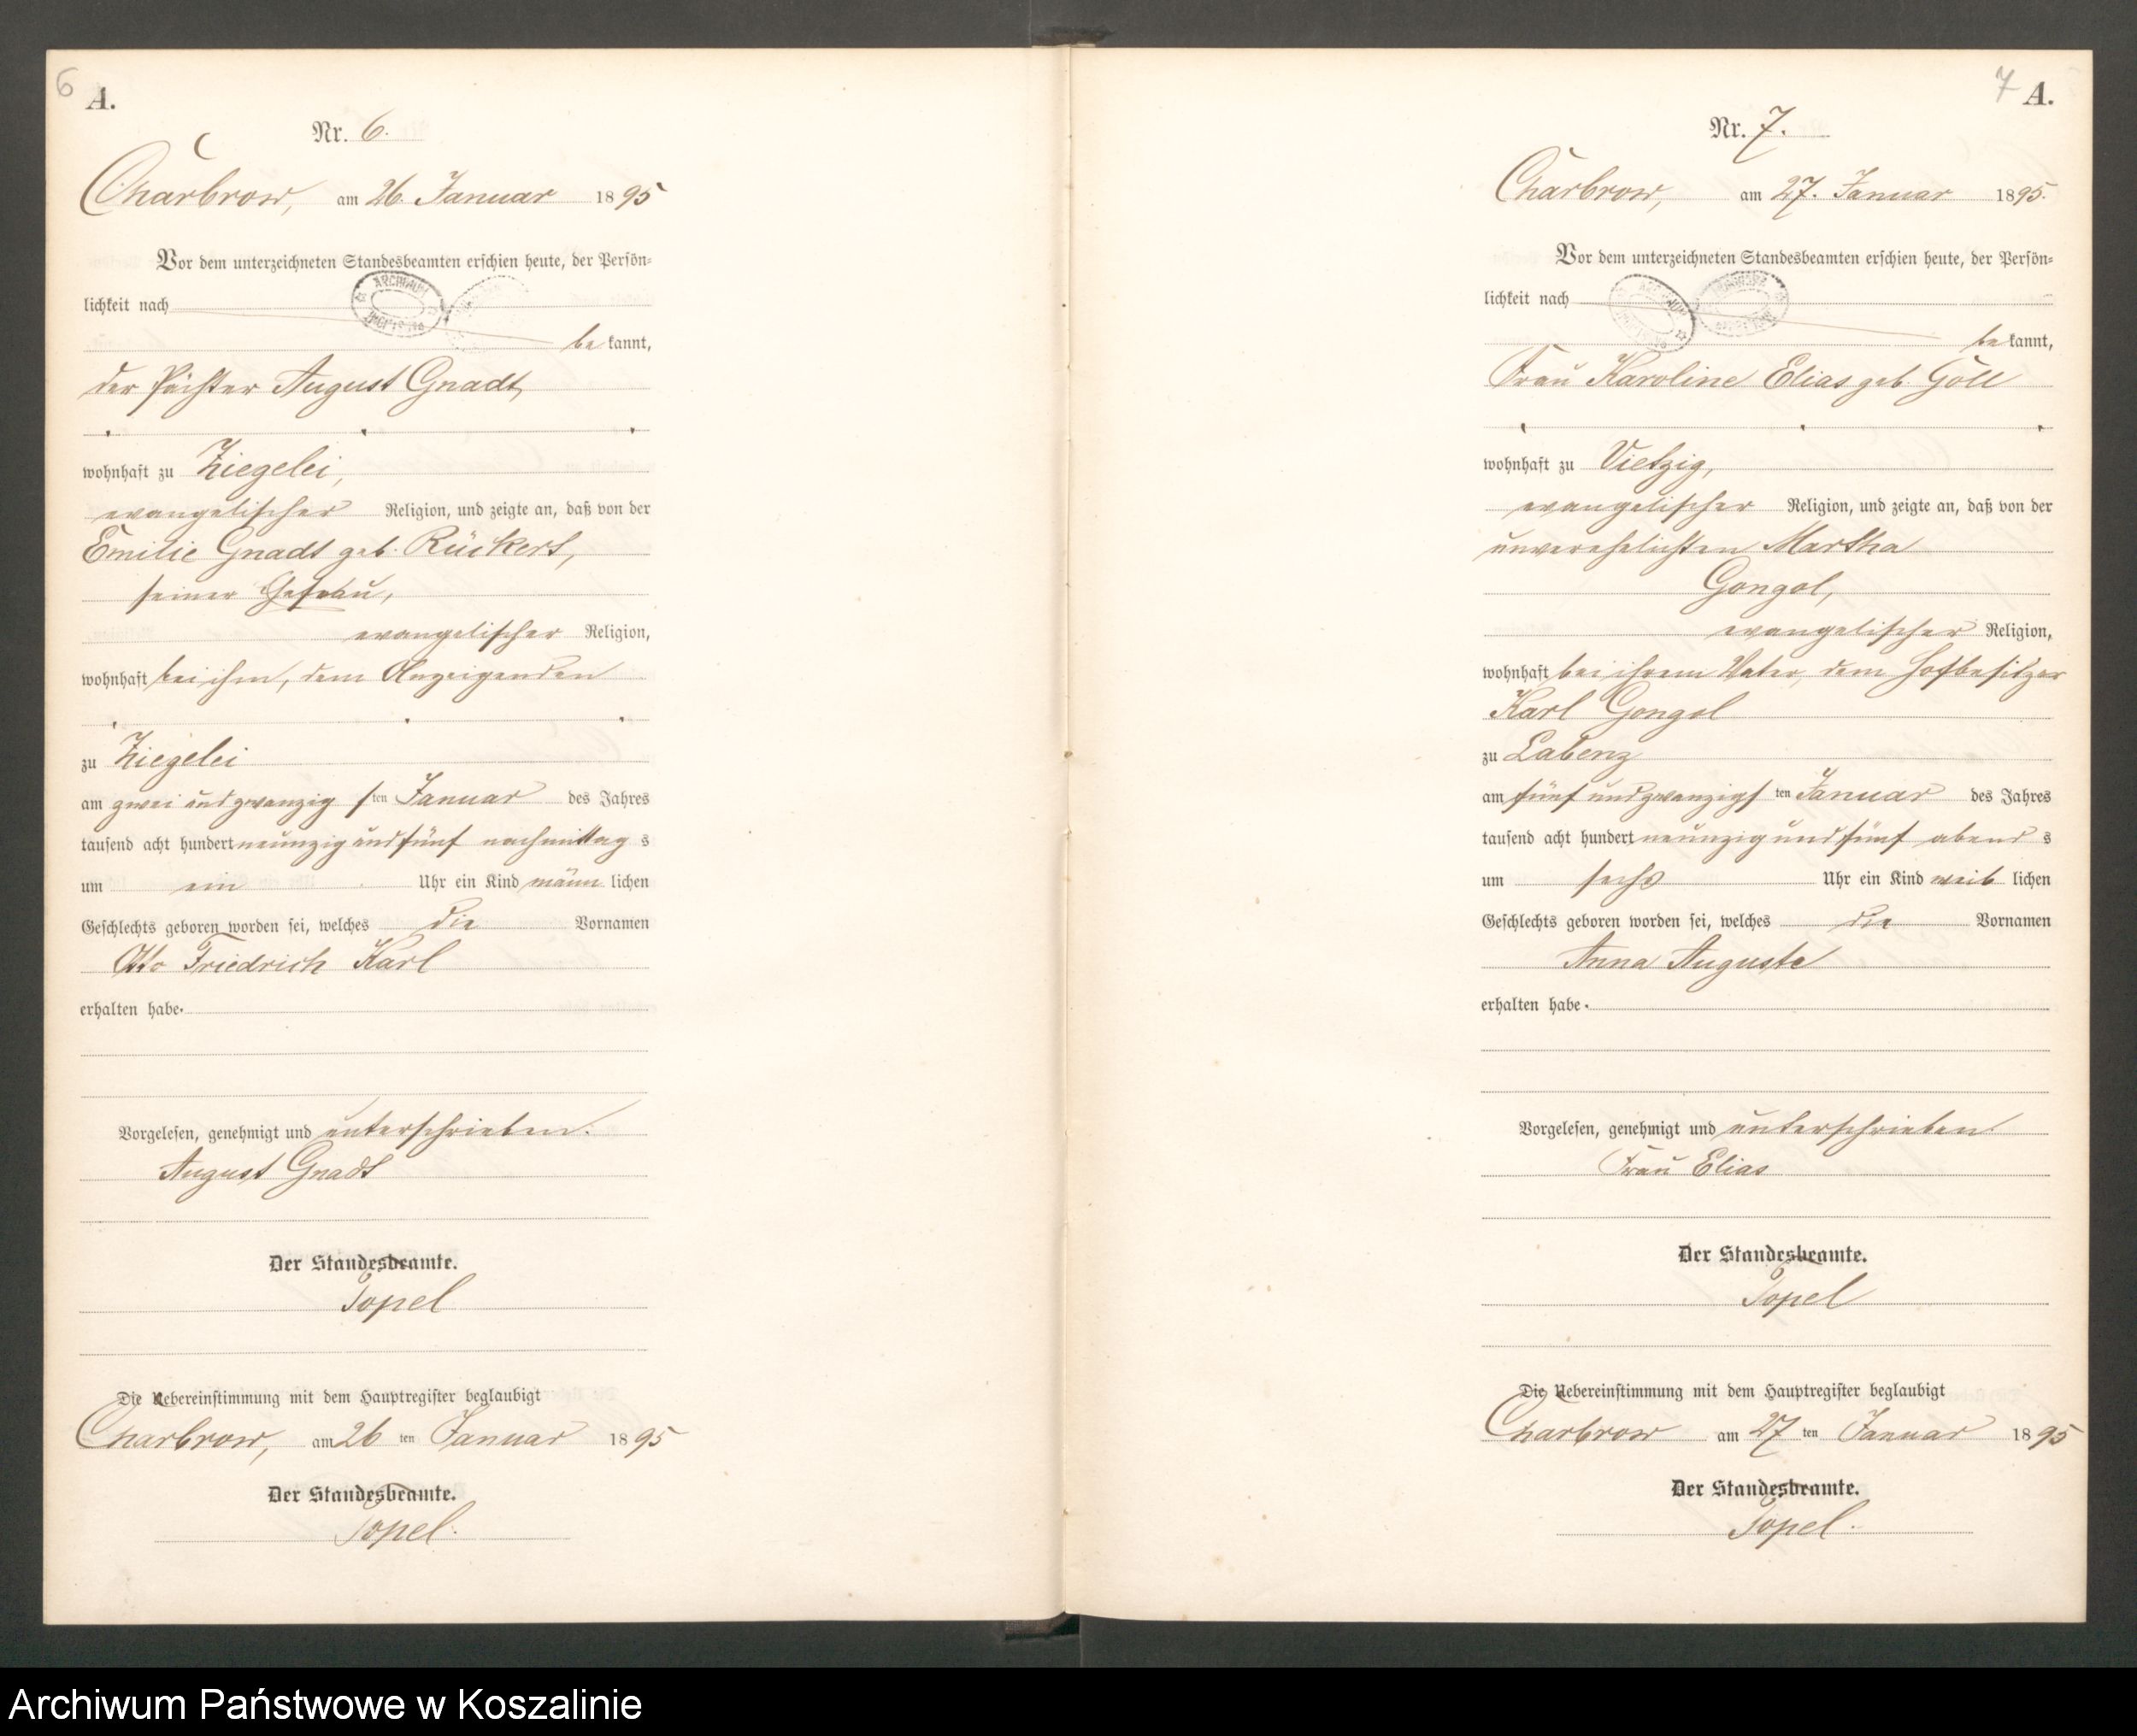 6
A.
Nr. 6.
Charbrow, am 26. Januar 1895
Vor dem unterzeichneten Standesbeamten erschien heute, der Persön-
lichkeit nach
ARCHIWUM
bekannt,
der Pächter August Gnadt,
wohnhaft zu Ziegelei,
evangelischer Religion, und zeigte an, daß von der
Emilie Gnadt geb. Rückert,
seiner Ehefrau,
evangelischer Religion,
wohnhaft bei ihm, dem Anzeigenden
zu Ziegelei
am zwei und zwanzigsten Januar des Jahres
tausend acht hundert neunzig und fünf nachmittags
um ein Uhr ein Kind männlichen
Geschlechts geboren worden sei, welches die Vornamen
Otto Friedrich Karl
erhalten habe.
Vorgelesen, genehmigt und unterschrieben.
August Gnadt
Der Standesbeamte.
Topel
Die Uebereinstimmung mit dem Hauptregister beglaubigt
Charbrow, am 26ten Januar 1895
Der Standesbeamte.
Topel.
7
A.
Nr. 7.
Charbrow, am 27. Januar 1895.
Vor dem unterzeichneten Standesbeamten erschien heute, der Persön-
lichkeit nach
bekannt,
Frau Karoline Elias geb. Göll
wohnhaft zu Vietzig,
evangelischer Religion, und zeigte an, daß von der
unverehelichten Martha
Gongol,
evangelischer Religion,
wohnhaft bei ihrem Vater, dem Hofbesitzer
Karl Gongol
zu Labenz
am fünf und zwanzigsten Januar des Jahres
tausend acht hundert neunzig und fünf abends
um sechs Uhr ein Kind weiblichen
Geschlechts geboren worden sei, welches die Vornamen
Anna Auguste
erhalten habe.
Vorgelesen, genehmigt und unterschrieben
Frau Elias
Der Standesbeamte.
Topel
Die Uebereinstimmung mit dem Hauptregister beglaubigt
Charbrow am 27ten Januar 1895
Der Standesbeamte.
Topel.
Archiwum Państwowe w Koszalinie